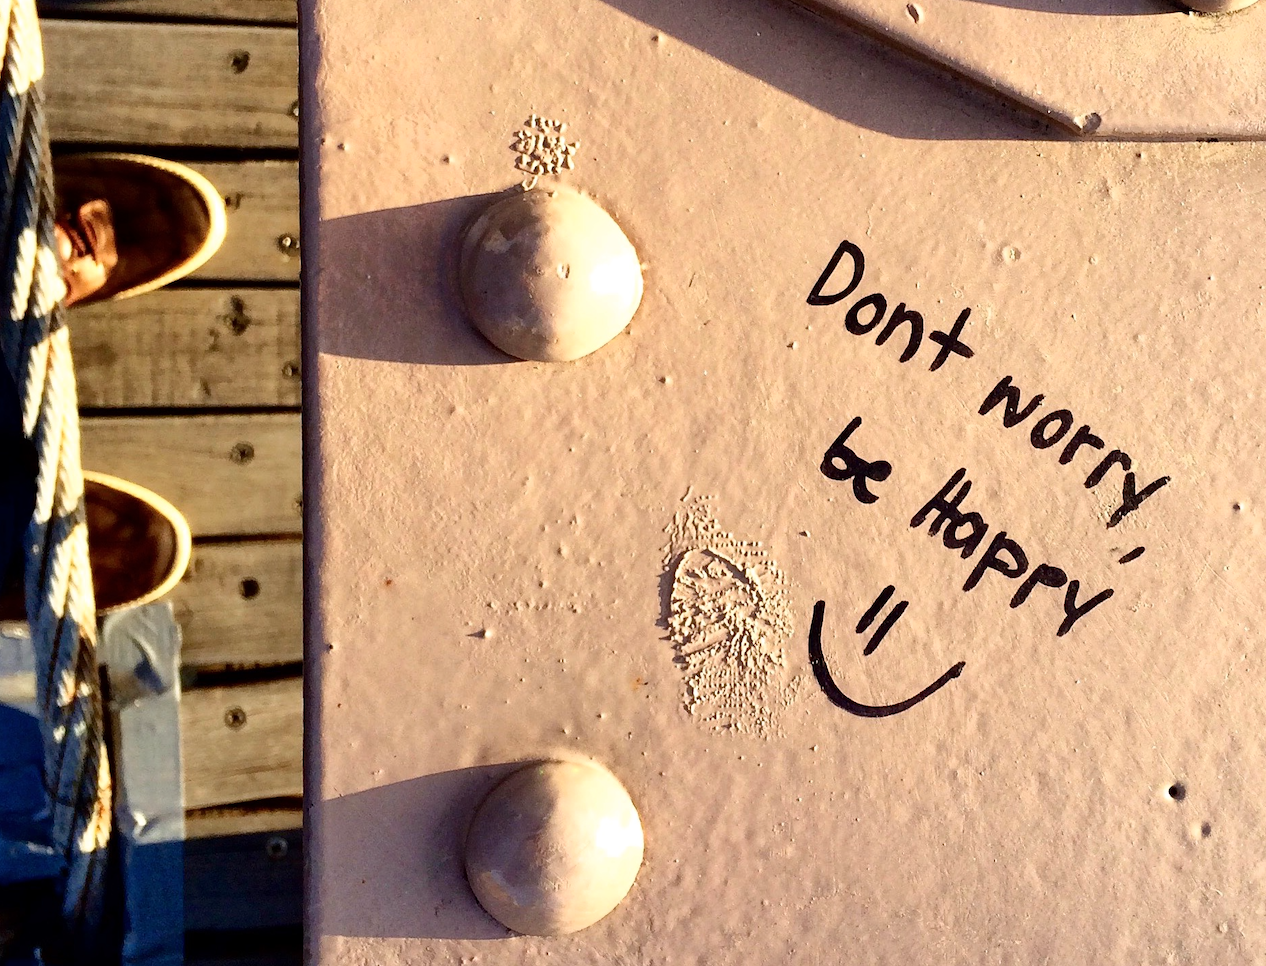 Dont worry,
be Happy